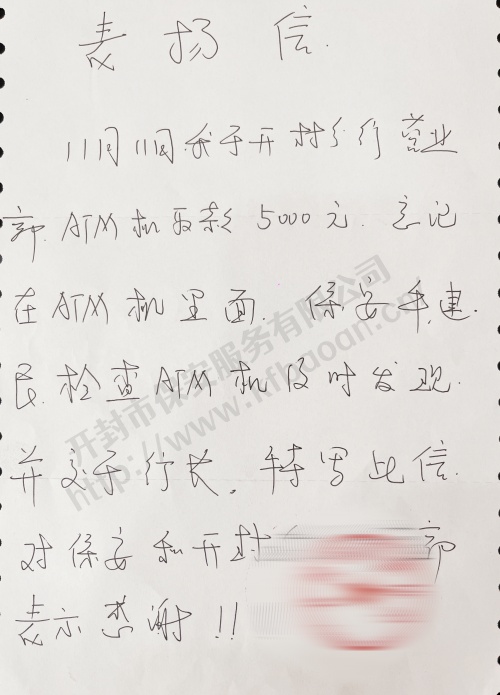 表扬信
11月11日我于开封分行营业
部ATM机取款5000元.忘记
在ATM机里面.保安李建
民.检查ATM机及时发现.
并交于行长.特写此信.
对保安和开封 部
表示感谢!!
开封市保安服务有限公司